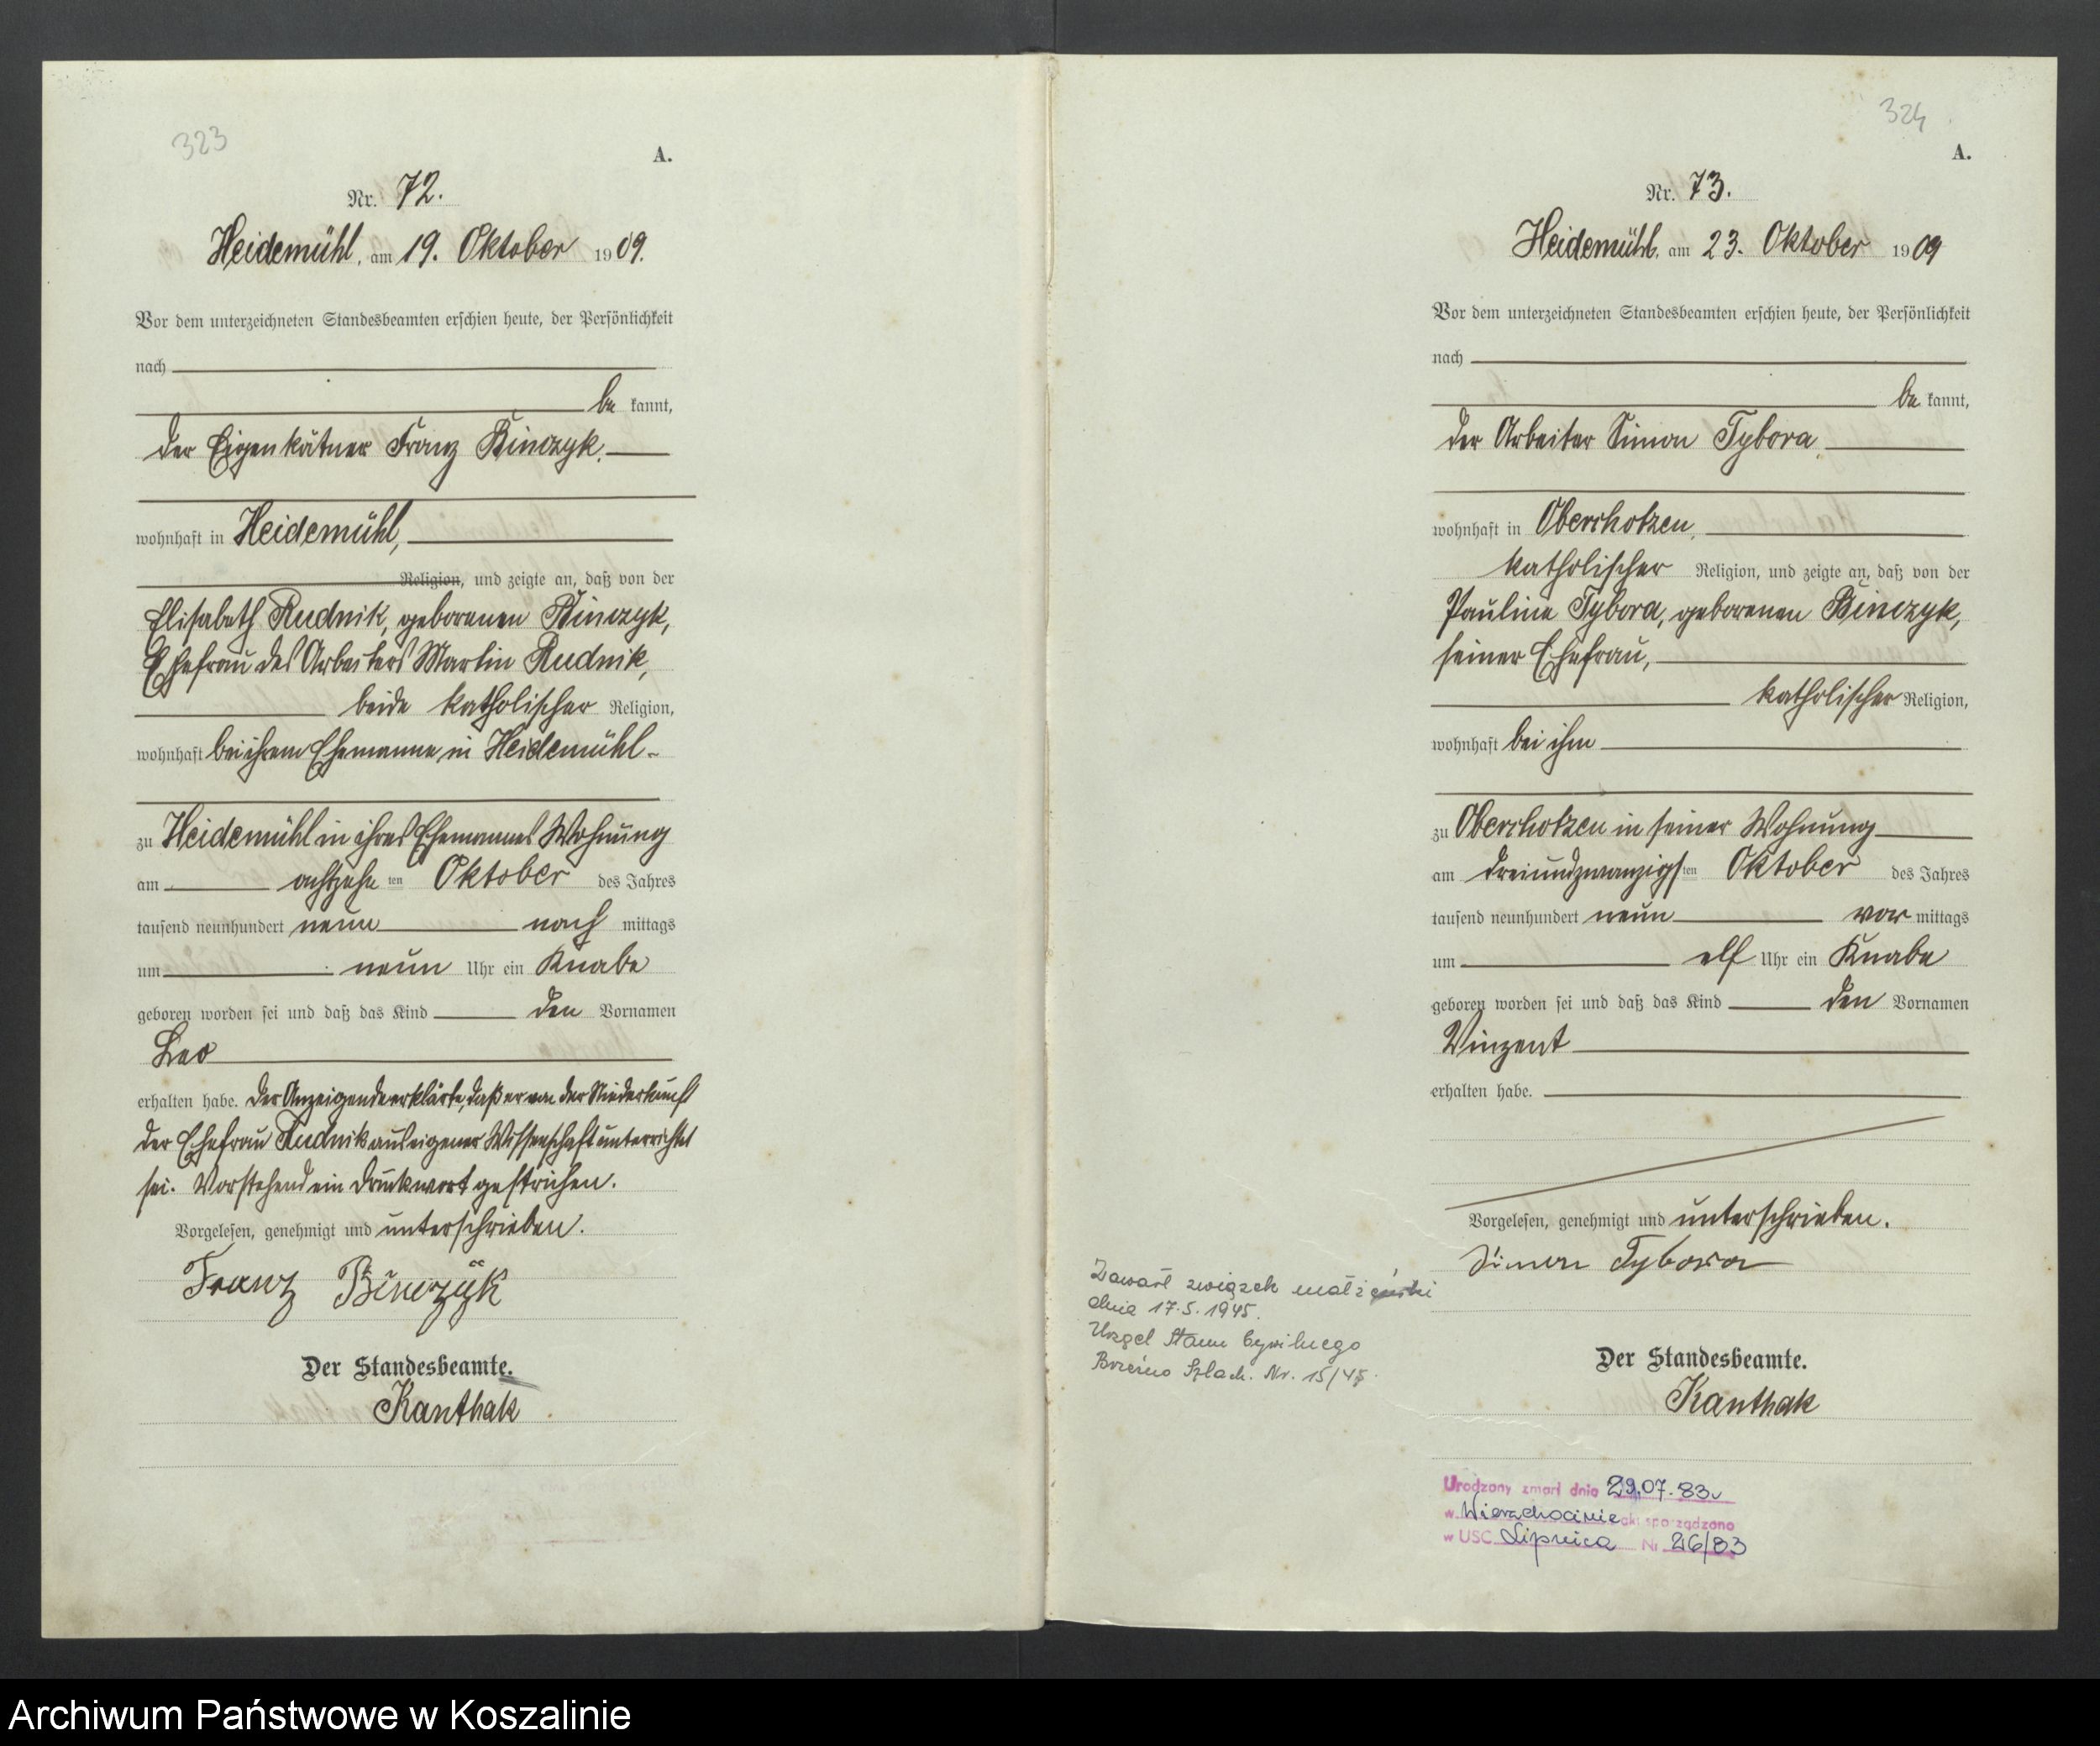 323
A.
Nr. 72.
Heidemühl, am 19. Oktober 1909.
Vor dem unterzeichneten Standesbeamten erschien heute, der Persönlichkeit
nach
be kannt,
der Eigenkätner Franz Binczyk,
wohnhaft in Heidemühl,
Religion, und zeigte an, daß von der
Elisabeth Rudnik, geborenen Binczyk,
Ehefrau des Arbeiters Martin Rudnik,
beide katholischer Religion,
wohnhaft bei ihrem Ehemanne in Heidemühl
zu Heidemühl in ihres Ehemannes Wohnung
am achtzehn ten Oktober des Jahres
tausend neunhundert neun nach mittags
um neun Uhr ein Knabe
geboren worden sei und daß das Kind den Vornamen
Leo
erhalten habe. Der Anzeigende erklärte, daß er von der Niederkunft
der Ehefrau Rudnik aus eigener Wissenschaft unterrichtet
sei. Vorstehend ein Druckwort gestrichen.
Vorgelesen, genehmigt und unterschrieben.
Franz Binczÿk
Der Standesbeamte.
Kanthak
324
A.
Nr. 73.
Heidemühl, am 23. Oktober 1909
Vor dem unterzeichneten Standesbeamten erschien heute, der Persönlichkeit
nach
be kannt,
der Arbeiter Simon Tybora,
wohnhaft in Oberchotzen,
katholischer Religion, und zeigte an, daß von der
Pauline Tybora, geborenen Binczyk,
seiner Ehefrau,
katholischer Religion,
wohnhaft bei ihm
zu Oberchotzen in seiner Wohnung
am dreiundzwanzigsten Oktober des Jahres
tausend neunhundert neun vor mittags
um elf Uhr ein Knabe
geboren worden sei und daß das Kind den Vornamen
Vinzent
erhalten habe.
Vorgelesen, genehmigt und unterschrieben.
Simon Tybora
Der Standesbeamte.
Kanthak
Zawarł związek małżeński
dnia 17.5.1945.
Urząd Stanu Cywilnego
Brzeźno Szlach. Nr. 15/45.
Urodzony zmarł dnia 29.07.83
w Wierzchocinie akt sporządzono
w USC Lipnica Nr 26/83
Archiwum Państwowe w Koszalinie